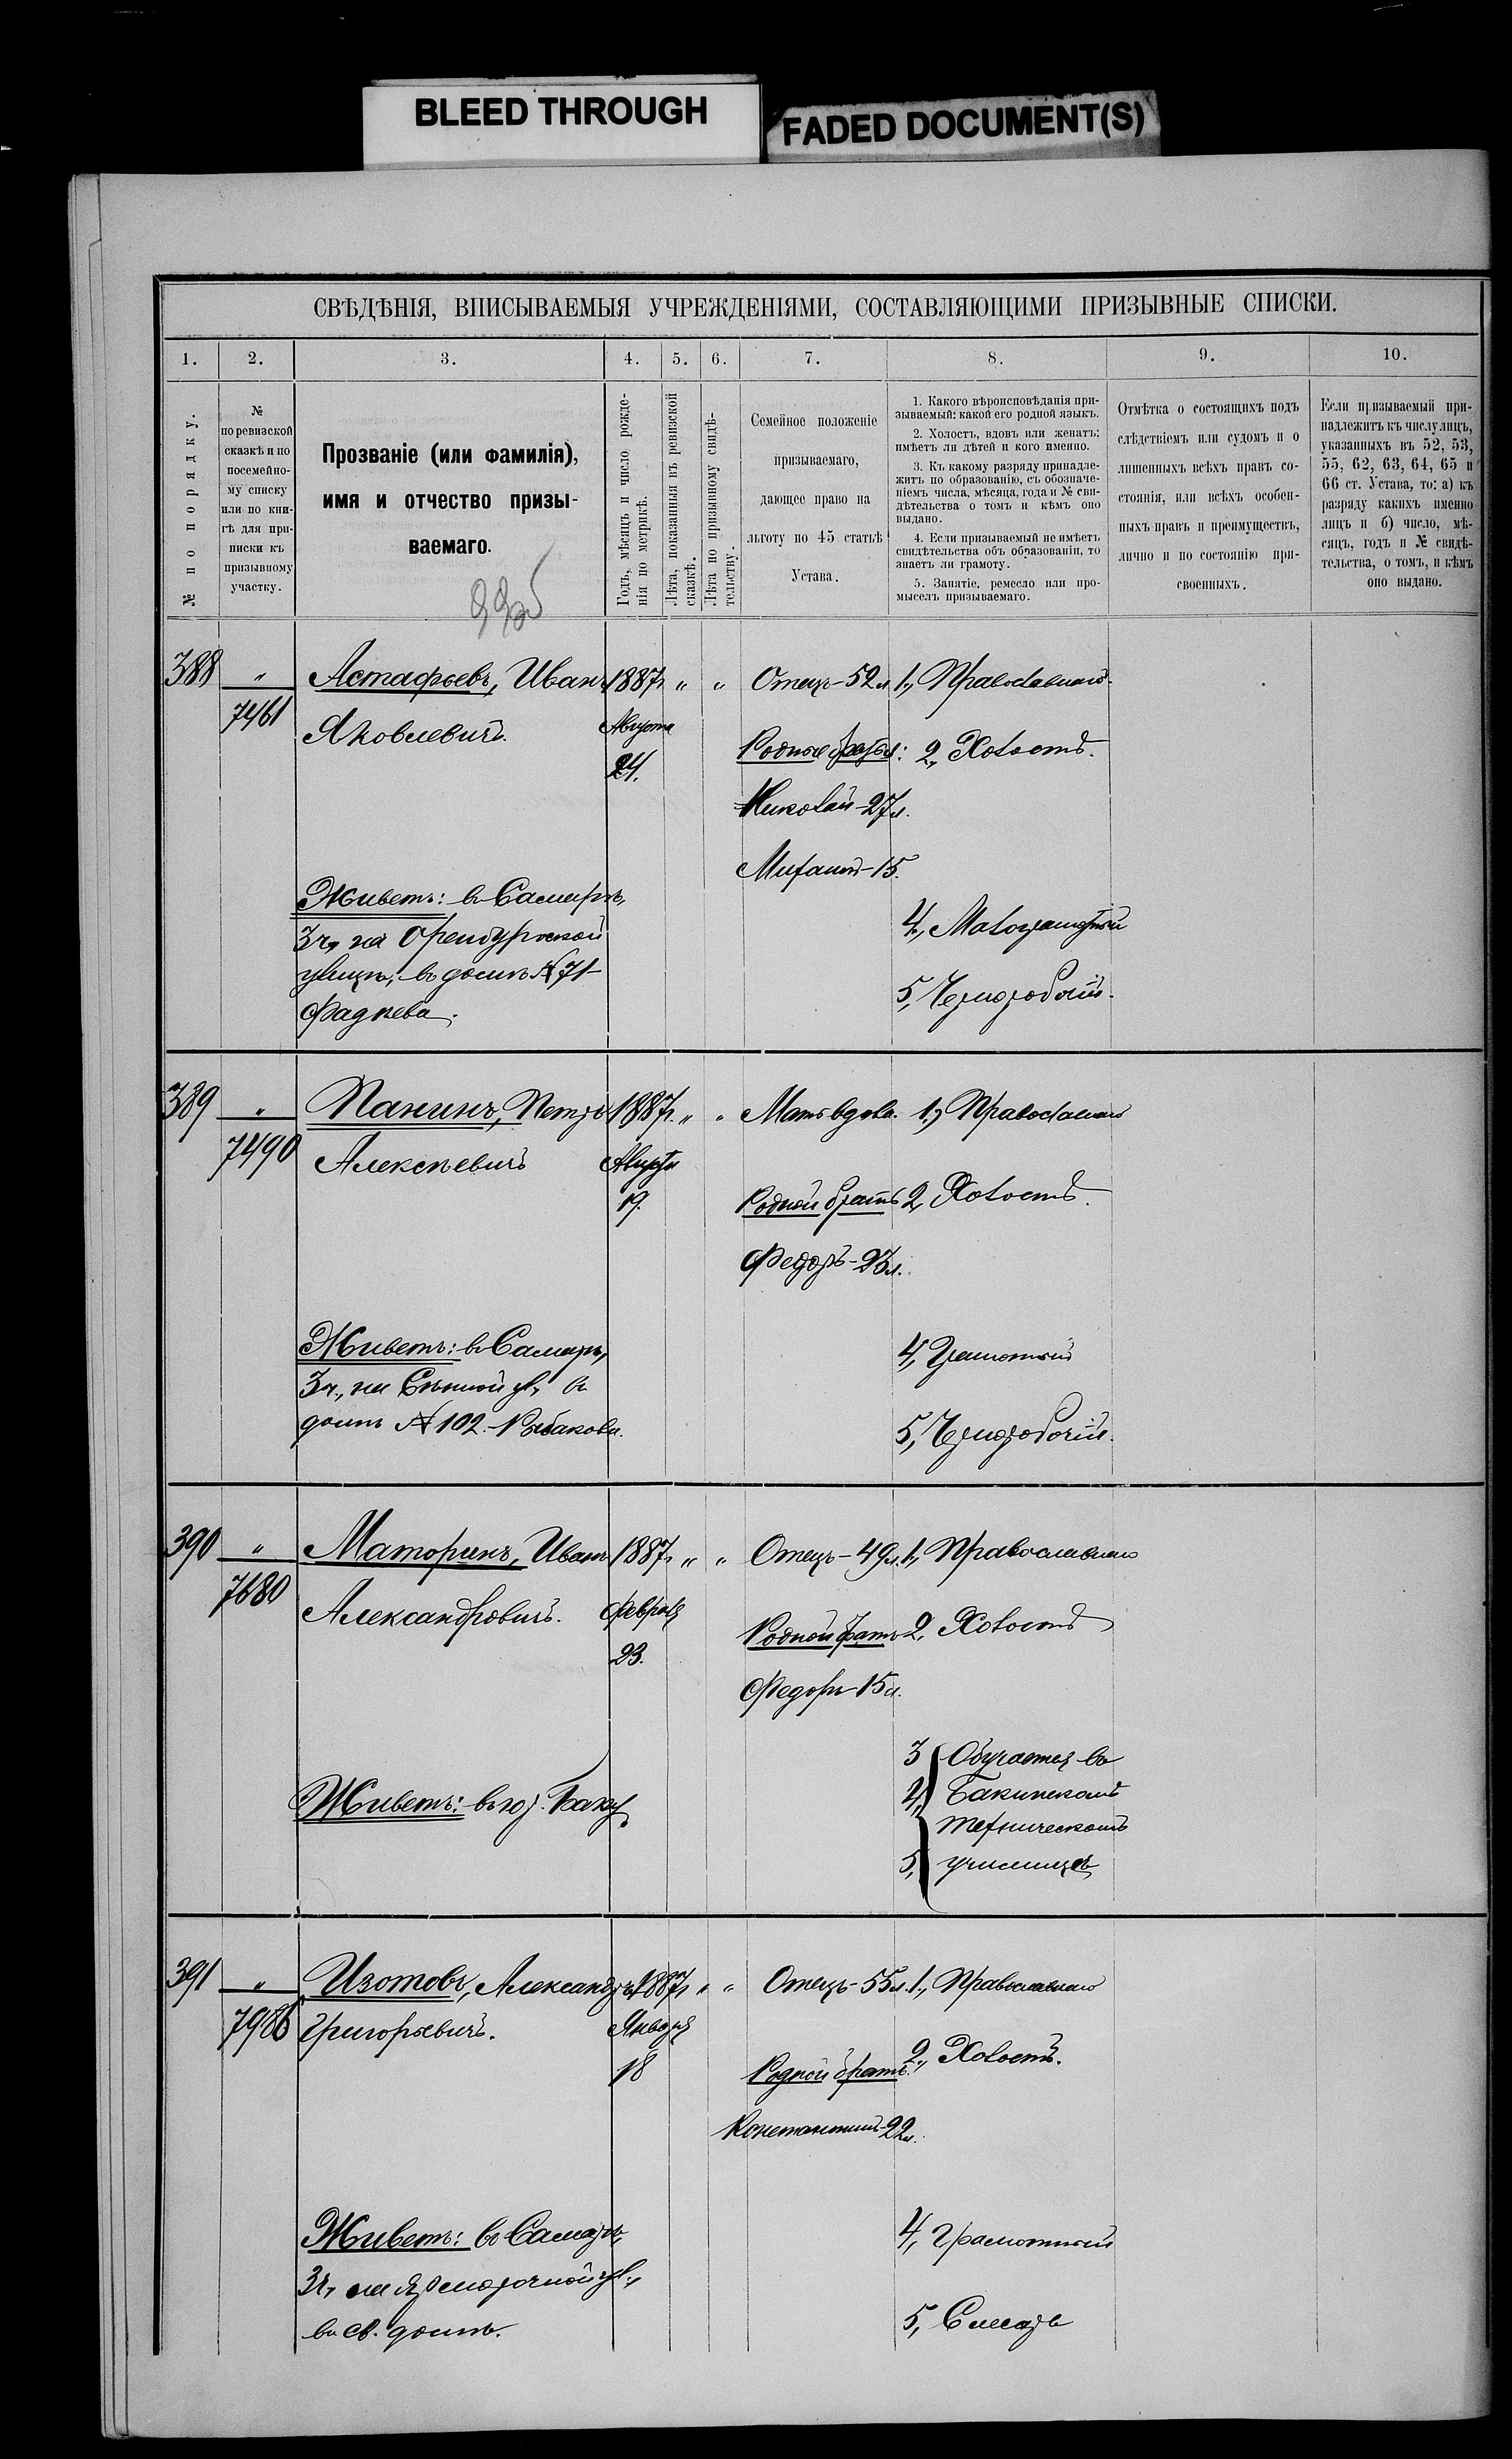 BLEED THROUGH
FADED DOCUMENT(S)
СВѢДѢНІЯ, ВПИСЫВАЕМЫЯ УЧРЕЖДЕНІЯМИ, СОСТАВЛЯЮЩИМИ ПРИЗЫВНЫЕ СПИСКИ.
1. 2. 3. 4. 5. 6. 7. 8. 9. 10.
№ по порядку.
№
по ревизской
сказкѣ и по
посемейно-
му списку
или по кни-
гѣ для при-
писки къ
призывному
участку.
Прозваніе (или фамилія),
имя и отчество призы-
ваемаго.
Годъ, мѣсяцъ и число рожде-
нія по метрикѣ.
Лѣта, показанныя въ ревизской
сказкѣ.
Лѣта по призывному свидѣ-
тельству.
Семейное положеніе
призываемаго,
дающее право на
льготу по 45 статьѣ
Устава.
1. Какого вѣроисповѣданія при-
зываемый: какой его родной языкъ.
2. Холостъ, вдовъ или женатъ;
имѣетъ ли дѣтей и кого именно.
3. Къ какому разряду принадле-
житъ по образованію, съ обозначе-
ніемъ числа, мѣсяца, года и № сви-
дѣтельства о томъ и кѣмъ оно
выдано.
4. Если призываемый не имѣетъ
свидѣтельства объ образованіи, то
знаетъ ли грамоту.
5. Занятіе, ремесло или про-
мыселъ призываемаго.
Отмѣтка о состоящихъ подъ
слѣдствіемъ или судомъ и о
лишенныхъ всѣхъ правъ со-
стоянія, или всѣхъ особен-
ныхъ правъ и преимуществъ,
лично и по состоянію при-
своенныхъ.
Если призываемый при-
надлежитъ къ числу лицъ,
указанныхъ въ 52, 53,
55, 62, 63, 64, 65 и
66 ст. Устава, то: а) къ
разряду какихъ именно
лицъ и б) число, мѣ-
сяцъ, годъ и № свидѣ-
тельства, о томъ, и кѣмъ
оно выдано.
388 " Астафьевъ, Иванъ 1887г " " Отецъ-52л 1., Православнаго.
7461 Яковлевичъ. Августа
24. Родные братья: 2., Холостъ.
Николай-27л.
Михаилъ-15.
Живетъ: въ Самарѣ,
3ч, на Оренбургской 4., Малограмотный
улицѣ, въ домѣ №71- 5, Чернорабочій.
Фадѣева.
389 " Панинъ, Петръ 1887г. " " Мать вдова. 1., Православнаго
7490 Алексѣевичъ Августа
19. Родной братъ 2, Холостъ.
Федоръ-23л.
Живетъ: въ Самарѣ, 4, Грамотный
3ч., на Сѣнной ул, въ
домѣ №102.-Рыбакова. 5, Чернорабочій.
390 " Маторинъ, Иванъ 1887г " " Отецъ-49л. 1., Православнаго
7680 Александровичъ. Февраля
23. Родной братъ 2, Холостъ
Федоръ-15л.
3 Обучается въ
Живетъ: въ гор. Баку 4, Бакинскомъ
техническомъ
5, училищѣ
391 " Изотовъ, Александръ 1887г " " Отецъ-55л. 1., Православнаго
7986 Григорьевичъ. Января
18 Родной братъ: 2., Холостъ.
Константинъ-22л.
Живетъ: въ Самарѣ, 4, Грамотный
3ч, на Ярмарочной ул.,
въ св. домѣ. 5, Слесарь